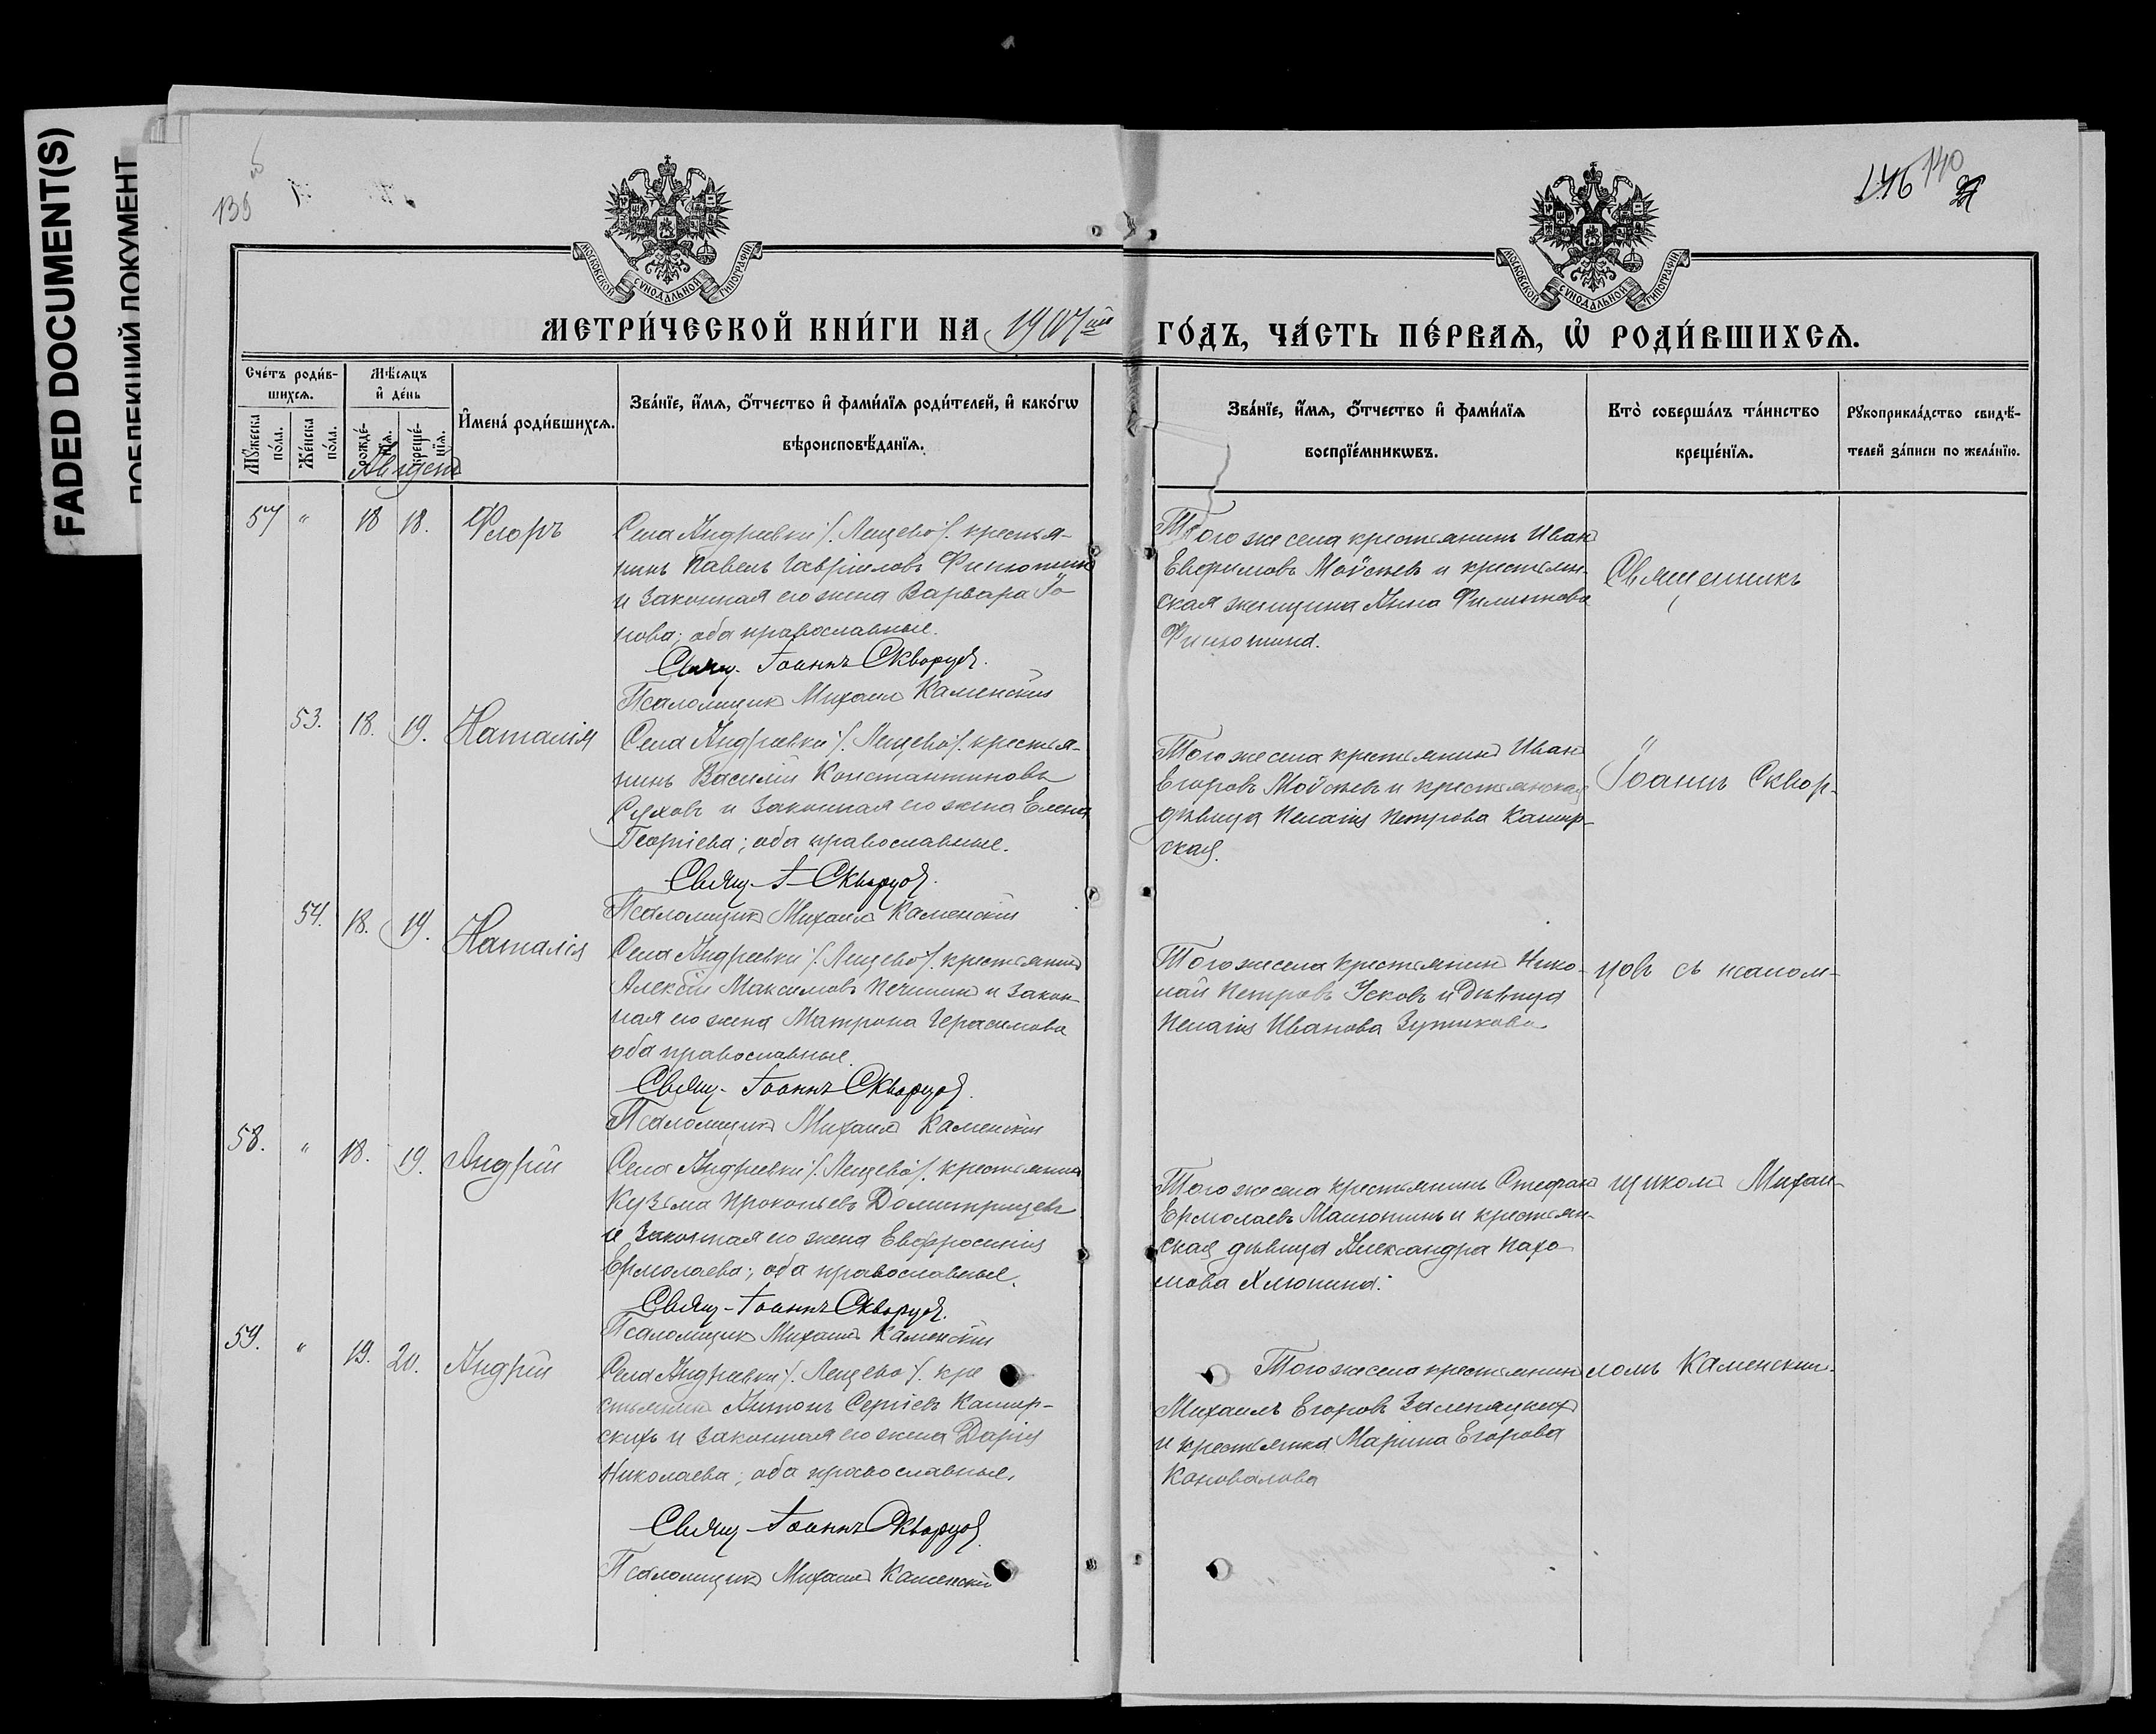 FADED DOCUMENT(S)
139
146 140
МОСКОВСКОЙ СѴНОДАЛЬНОЙ ТИПОГРАФІИ
МОСКОВСКОЙ СѴНОДАЛЬНОЙ ТИПОГРАФІИ
МЕТРИ́ЧЕСКОЙ КНИ́ГИ НА 1907ый ГО́ДЪ, ЧА́СТЬ ПЕ́РВАѦ, Ѡ҆ РОДИ́ВШИХСѦ.
Сче́тъ роди́в-
шихсѧ.
Мꙋ́жеска по́ла.
Же́нска по́ла.
Мѣ́сѧцъ
и҆ де́нь
рожде́-нїѧ.
креще́-нїѧ.
И҆мена̀ роди́вшихсѧ.
Зва́нїе, и҆́мѧ, ѻ҆́тчество и҆ фами́лїѧ роди́телей, и҆ како́гѡ
вѣроисповѣ́данїѧ.
Зва́нїе, и҆́мѧ, ѻ҆́тчество и҆ фами́лїѧ
воспрїе́мникѡвъ.
Кто̀ соверша́лъ та́инство
креще́нїѧ.
Рꙋкоприкла́дство свидѣ́-
телей за́писи по жела́нїю.
Августъ
57 " 18 18. Флоръ
Села Андреевки /. Лещево /. крестья-
нинъ Павелъ Гавріиловъ Финютинъ
и законная его жена Варвара Іо
нова; оба православные.
Свящ. Іоаннъ Скворцовъ.
Псаломщикъ Михаилъ Каменскій
Того же села крестьянинъ Иванъ
Евфимовъ Мойсѣевъ и крестьян-
ская женщина Анна Филиппова
Финютина.
Священникъ
53. 18. 19. Наталія
Села Андреевки /. Лещево /. крестья-
нинъ Василій Константиновъ
Суховъ и законная его жена Елена
Георгіева; оба православные.
Свящ. І. Скворцовъ.
Псаломщикъ Михаилъ Каменскій
Того же села крестьянинъ Иванъ
Егоровъ Мойсѣевъ и крестьянская
дѣвица Пелагія Петрова Кашир-
ская.
"
Іоаннъ Сквор-
54. 18. 19. Наталія
Села Андреевки /. Лещево /. крестьянинъ
Алексѣй Максимовъ Печинин и закон-
ная его жена Матрона Герасимова
оба православные
Свящ. Іоаннъ Скворцовъ.
Псаломщикъ Михаилъ Каменскій
Того же села крестьянинъ Нико-
лай Петровъ Усковъ и дѣвица
Пелагія Иванова
цовъ съ псалом-
58. " 18. 19. Андрей
Села Андреевки /. Лещево /. крестьянинъ
Кузьма Прокопьевъ
и законная его жена Евфросинія
Ермолаева; оба православные.
Свящ. Іоаннъ Скворцовъ.
Псаломщикъ Михаилъ Каменскій
Того же села крестьянинъ Стефанъ
Ермолаевъ и крестьян-
ская дѣвица Александра Пахо-
мова Хлюпина.
щикомъ Михаи-
59. " 19. 20. Андрей
Села Андреевки /. Лещево /. кре
стьянинъ Антонъ Сергіевъ Кашир-
скихъ и законная его жена Дарія
Николаева; оба православные.
Свящ. Іоаннъ Скворцовъ.
Псаломщикъ Михаилъ Каменскій
Того же села крестьянинъ
Михаилъ Егоровъ
и крестьянка Марина Егорова
Коновалова
ломъ Каменскимъ.